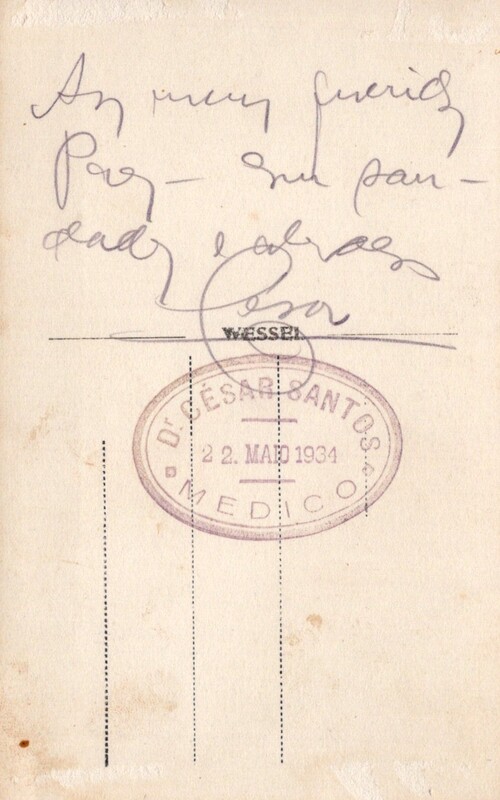 Ao meu querido
Pae – em sau-
dade e abraços
Cesar
WESSEL
Dr. CÉSAR SANTOS
22. MAIO 1934
MEDICO